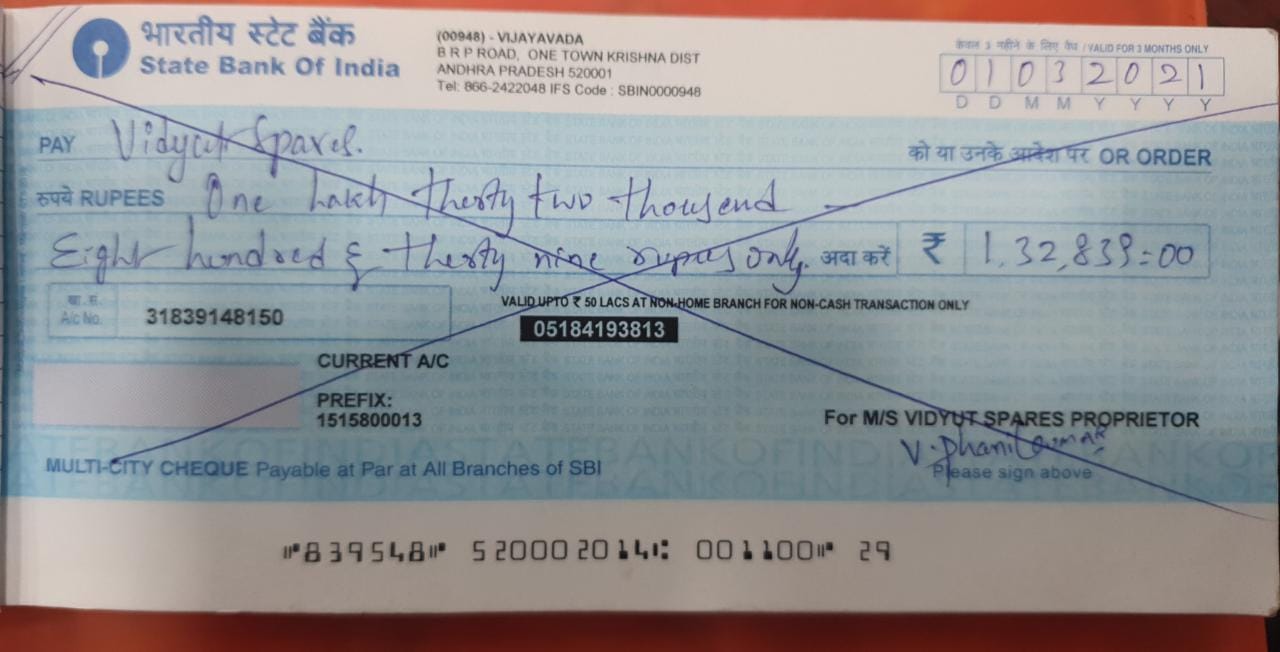 भारतीय स्टेट बैंक
State Bank Of India
(00948) - VIJAYAVADA
B R P ROAD, ONE TOWN KRISHNA DIST
ANDHRA PRADESH 520001
Tel: 866-2422048 IFS Code : SBIN0000948
केवल 3 महीने के लिए वैध / VALID FOR 3 MONTHS ONLY
0 1 0 3 2 0 2 1
D D M M Y Y Y Y
PAY Vidyut Spares.
को या उनके आदेश पर OR ORDER
रुपये RUPEES One Lakh therty two thousend
Eight hundred & therty nine rupees only. अदा करें ₹ 1,32,839=00
खा. सं.
A/c No. 31839148150
VALID UPTO ₹ 50 LACS AT NON-HOME BRANCH FOR NON-CASH TRANSACTION ONLY
05184193813
CURRENT A/C
PREFIX:
1515800013
For M/S VIDYUT SPARES PROPRIETOR
MULTI-CITY CHEQUE Payable at Par at All Branches of SBI
Please sign above
⑈839548⑈ 520002014⑆ 001100⑈ 29